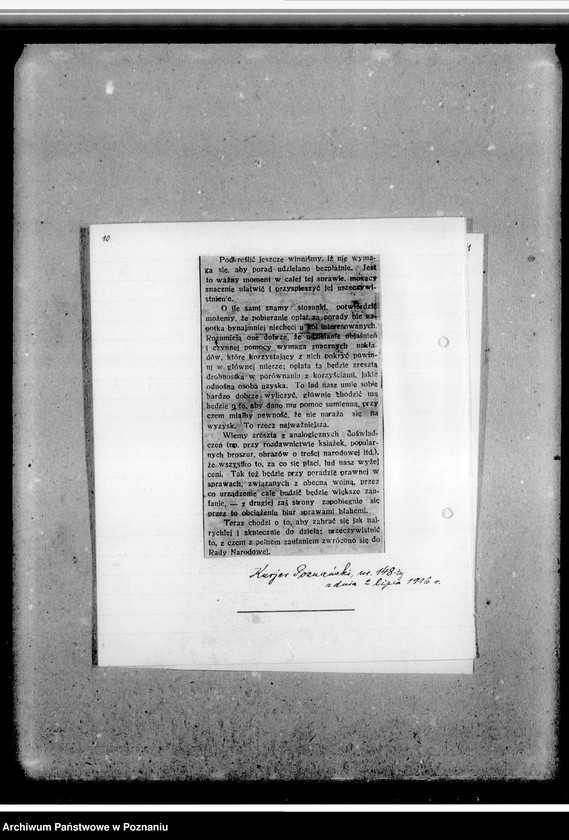 10
Podkreślić jeszcze winniśmy, iż nie wyma-
ga się, aby porad udzielano bezpłatnie. Jest
to ważny moment w całej tej sprawie, mogący
znacznie ułatwić i przyspieszyć jej urzeczywi-
stnienie.
O ile sami znamy stosunki, potwierdzić
możemy, że pobieranie opłat za porady nie na-
potka bynajmniej niechęci u kół interesowanych.
Rozumieją one dobrze, że udzielanie objaśnień
i czynnej pomocy wymaga znacznych nakła-
dów, które korzystający z nich pokryć powin-
ni w głównej mierze; opłata ta będzie zresztą
drobnostką w porównaniu z korzyściami, jakie
odnośna osoba uzyska. To lud nasz umie sobie
bardzo dobrze wyliczyć, głównie chodzić mu
będzie o to, aby dano mu pomoc sumienną, przy
czem miałby pewność, że nie naraża się na
wyzysk. To rzecz najważniejsza.
Wiemy zresztą z analogicznych doświad-
czeń (np. przy rozdawnictwie książek, popular-
nych broszur, obrazów o treści narodowej itd.),
że wszystko to, za co się płaci, lud nasz wyżej
ceni. Tak też będzie przy poradzie prawnej w
sprawach, związanych z obecną wojną, przez
co urządzenie całe budzić będzie większe zau-
fanie, — z drugiej zaś strony zapobiegnie się
przez to obciążeniu biur sprawami błahemi.
Teraz chodzi o to, aby zabrać się jak naj-
rychlej i skutecznie do dzieła; urzeczywistnić
to, z czem z pełnem zaufaniem zwrócono się do
Rady Narodowej.
Kurjer Poznański, nr. 148-ty
z dnia 2 lipca 1916 r.
Archiwum Państwowe w Poznaniu